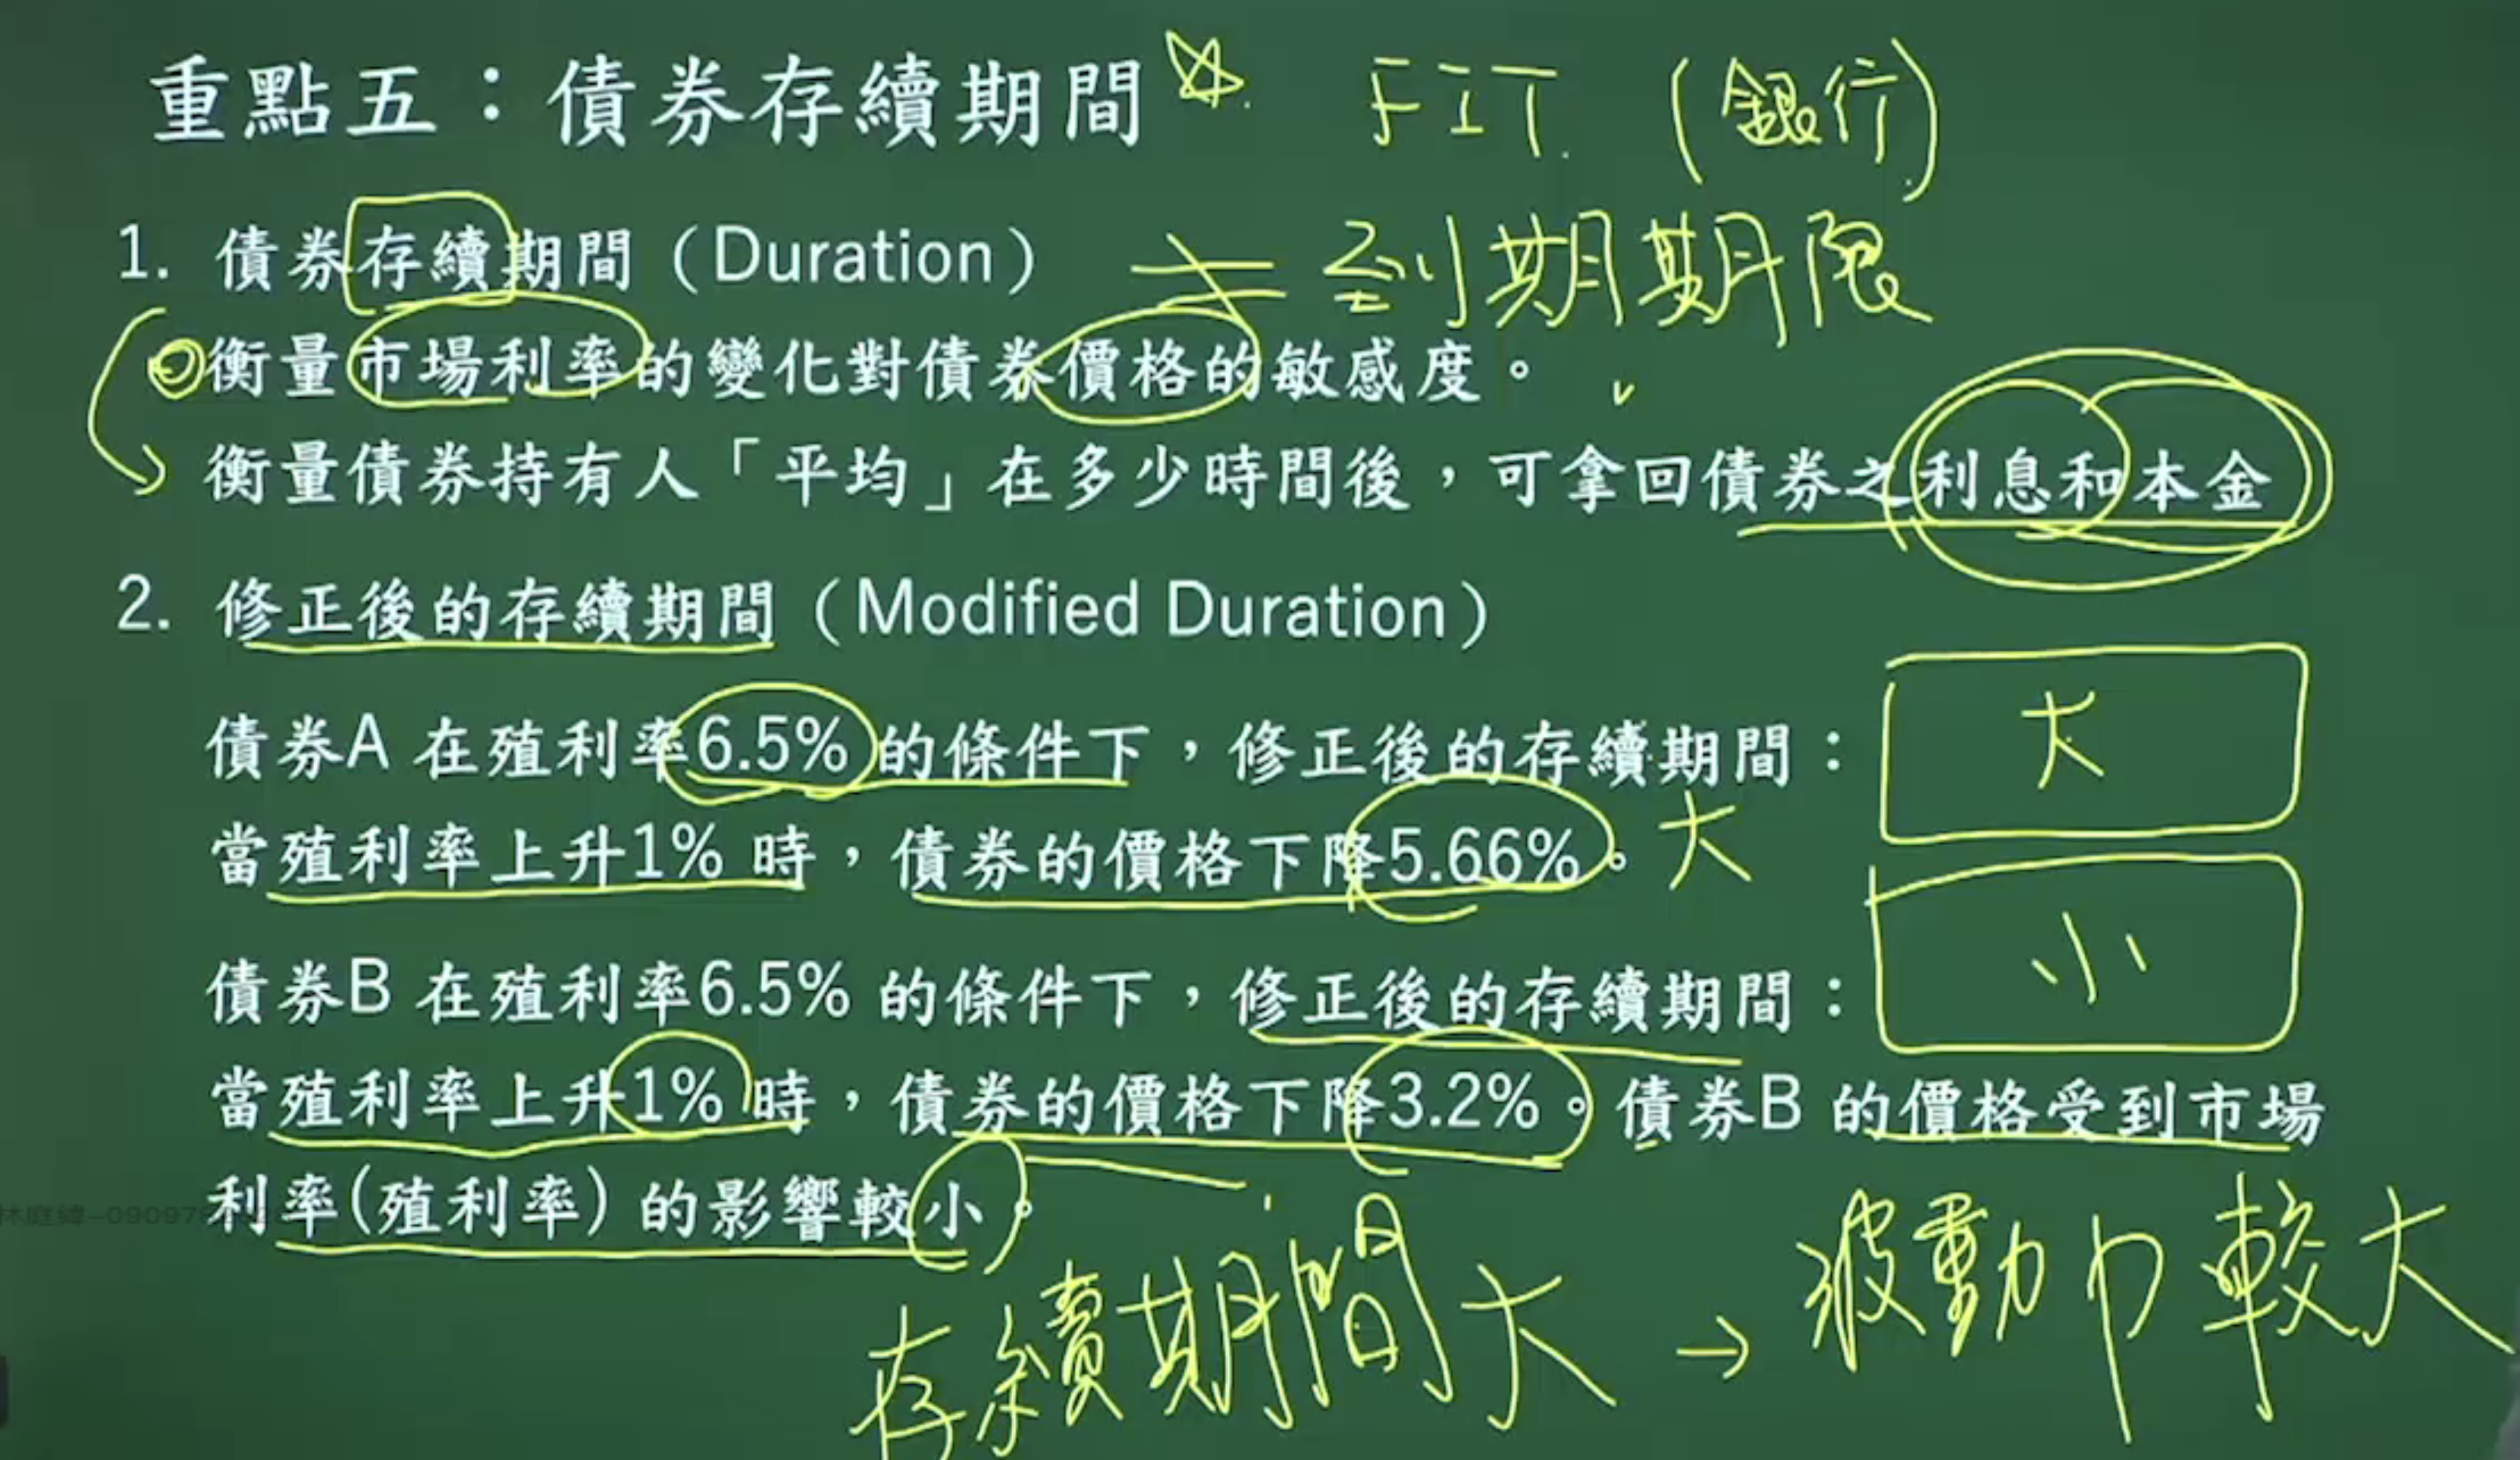 重點五：債券存續期間 ☆ FIT (銀行)
1. 債券存續期間（Duration） ≠ 到期期限
衡量市場利率的變化對債券價格的敏感度。
衡量債券持有人「平均」在多少時間後，可拿回債券之利息和本金
2. 修正後的存續期間（Modified Duration）
債券A 在殖利率6.5% 的條件下，修正後的存續期間： 大
當殖利率上升1% 時，債券的價格下降5.66%。 大
債券B 在殖利率6.5% 的條件下，修正後的存續期間： 小
當殖利率上升1% 時，債券的價格下降3.2%。債券B 的價格受到市場
利率(殖利率) 的影響較小。
存續期間大 → 波動 較大